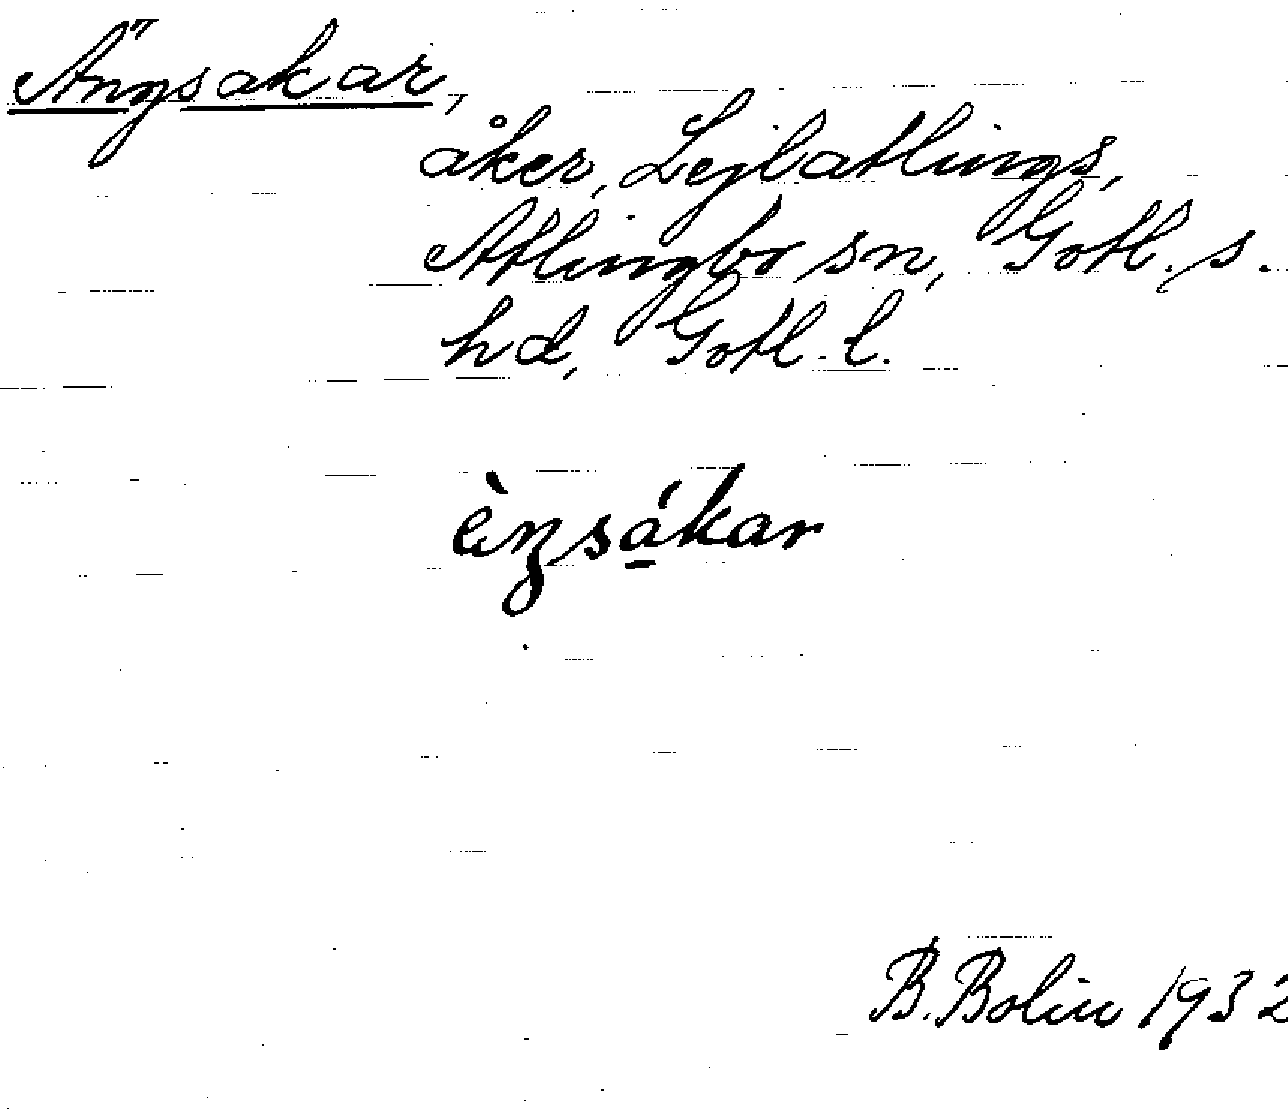 Ängsakar,
åker, Lejlatlings,
Atlingbo sn, Gotl. s.
hd, Gotl. l.
ä̀ŋsá̱kar
B. Bolin 1932